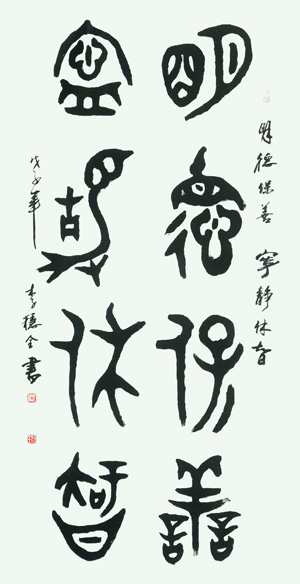 明德保善 寧静休智
明德保善
寧静休智
戊子年 李
全書